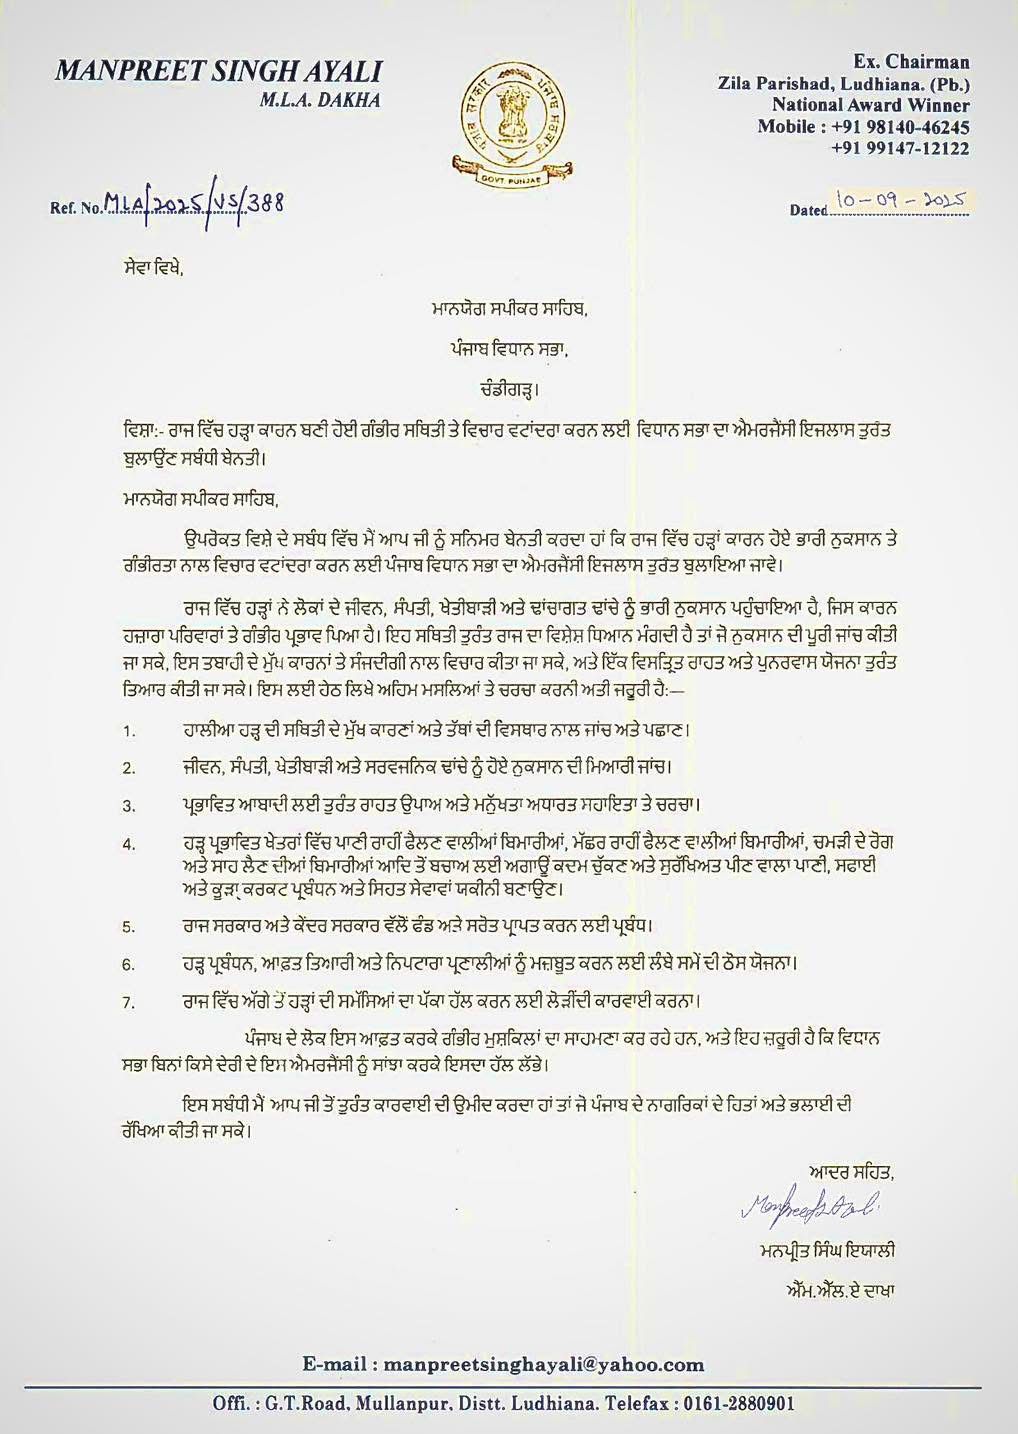 MANPREET SINGH AYALI
M.L.A. DAKHA
ਪੰਜਾਬ ਸਰਕਾਰ
GOVT. PUNJAB
Ex. Chairman
Zila Parishad, Ludhiana. (Pb.)
National Award Winner
Mobile : +91 98140-46245
+91 99147-12122
Ref. No. MLA/2025/VS/388
Dated 10-09-2025
ਸੇਵਾ ਵਿਖੇ,
ਮਾਨਯੋਗ ਸਪੀਕਰ ਸਾਹਿਬ,
ਪੰਜਾਬ ਵਿਧਾਨ ਸਭਾ,
ਚੰਡੀਗੜ੍ਹ।
ਵਿਸ਼ਾ:- ਰਾਜ ਵਿੱਚ ਹੜ੍ਹਾ ਕਾਰਨ ਬਣੀ ਹੋਈ ਗੰਭੀਰ ਸਥਿਤੀ ਤੇ ਵਿਚਾਰ ਵਟਾਂਦਰਾ ਕਰਨ ਲਈ ਵਿਧਾਨ ਸਭਾ ਦਾ ਐਮਰਜੈਂਸੀ ਇਜਲਾਸ ਤੁਰੰਤ
ਬੁਲਾਉਂਣ ਸਬੰਧੀ ਬੇਨਤੀ।
ਮਾਨਯੋਗ ਸਪੀਕਰ ਸਾਹਿਬ,
ਉਪਰੋਕਤ ਵਿਸ਼ੇ ਦੇ ਸਬੰਧ ਵਿੱਚ ਮੈਂ ਆਪ ਜੀ ਨੂੰ ਸਨਿਮਰ ਬੇਨਤੀ ਕਰਦਾ ਹਾਂ ਕਿ ਰਾਜ ਵਿੱਚ ਹੜ੍ਹਾਂ ਕਾਰਨ ਹੋਏ ਭਾਰੀ ਨੁਕਸਾਨ ਤੇ
ਗੰਭੀਰਤਾ ਨਾਲ ਵਿਚਾਰ ਵਟਾਂਦਰਾ ਕਰਨ ਲਈ ਪੰਜਾਬ ਵਿਧਾਨ ਸਭਾ ਦਾ ਐਮਰਜੈਂਸੀ ਇਜਲਾਸ ਤੁਰੰਤ ਬੁਲਾਇਆ ਜਾਵੇ।
ਰਾਜ ਵਿੱਚ ਹੜ੍ਹਾਂ ਨੇ ਲੋਕਾਂ ਦੇ ਜੀਵਨ, ਸੰਪਤੀ, ਖੇਤੀਬਾੜੀ ਅਤੇ ਢਾਂਚਾਗਤ ਢਾਂਚੇ ਨੂੰ ਭਾਰੀ ਨੁਕਸਾਨ ਪਹੁੰਚਾਇਆ ਹੈ, ਜਿਸ ਕਾਰਨ
ਹਜ਼ਾਰਾ ਪਰਿਵਾਰਾਂ ਤੇ ਗੰਭੀਰ ਪ੍ਰਭਾਵ ਪਿਆ ਹੈ। ਇਹ ਸਥਿਤੀ ਤੁਰੰਤ ਰਾਜ ਦਾ ਵਿਸ਼ੇਸ਼ ਧਿਆਨ ਮੰਗਦੀ ਹੈ ਤਾਂ ਜੋ ਨੁਕਸਾਨ ਦੀ ਪੂਰੀ ਜਾਂਚ ਕੀਤੀ
ਜਾ ਸਕੇ, ਇਸ ਤਬਾਹੀ ਦੇ ਮੁੱਖ ਕਾਰਨਾਂ ਤੇ ਸੰਜਦੀਗੀ ਨਾਲ ਵਿਚਾਰ ਕੀਤਾ ਜਾ ਸਕੇ, ਅਤੇ ਇੱਕ ਵਿਸਤ੍ਰਿਤ ਰਾਹਤ ਅਤੇ ਪੁਨਰਵਾਸ ਯੋਜਨਾ ਤੁਰੰਤ
ਤਿਆਰ ਕੀਤੀ ਜਾ ਸਕੇ। ਇਸ ਲਈ ਹੇਠ ਲਿਖੇ ਅਹਿਮ ਮਸਲਿਆਂ ਤੇ ਚਰਚਾ ਕਰਨੀ ਅਤੀ ਜਰੂਰੀ ਹੈ:—
1. ਹਾਲੀਆ ਹੜ੍ਹ ਦੀ ਸਥਿਤੀ ਦੇ ਮੁੱਖ ਕਾਰਣਾਂ ਅਤੇ ਤੱਥਾਂ ਦੀ ਵਿਸਥਾਰ ਨਾਲ ਜਾਂਚ ਅਤੇ ਪਛਾਣ।
2. ਜੀਵਨ, ਸੰਪਤੀ, ਖੇਤੀਬਾੜੀ ਅਤੇ ਸਰਵਜਨਿਕ ਢਾਂਚੇ ਨੂੰ ਹੋਏ ਨੁਕਸਾਨ ਦੀ ਮਿਆਰੀ ਜਾਂਚ।
3. ਪ੍ਰਭਾਵਿਤ ਆਬਾਦੀ ਲਈ ਤੁਰੰਤ ਰਾਹਤ ਉਪਾਅ ਅਤੇ ਮਨੁੱਖਤਾ ਅਧਾਰਤ ਸਹਾਇਤਾ ਤੇ ਚਰਚਾ।
4. ਹੜ੍ਹ ਪ੍ਰਭਾਵਿਤ ਖੇਤਰਾਂ ਵਿੱਚ ਪਾਣੀ ਰਾਹੀਂ ਫੈਲਣ ਵਾਲੀਆਂ ਬਿਮਾਰੀਆਂ, ਮੱਛਰ ਰਾਹੀਂ ਫੈਲਣ ਵਾਲੀਆਂ ਬਿਮਾਰੀਆਂ, ਚਮੜੀ ਦੇ ਰੋਗ
ਅਤੇ ਸਾਹ ਲੈਣ ਦੀਆਂ ਬਿਮਾਰੀਆਂ ਆਦਿ ਤੋਂ ਬਚਾਅ ਲਈ ਅਗਾਊਂ ਕਦਮ ਚੁੱਕਣ ਅਤੇ ਸੁਰੱਖਿਅਤ ਪੀਣ ਵਾਲਾ ਪਾਣੀ, ਸਫਾਈ
ਅਤੇ ਕੂੜਾ ਕਰਕਟ ਪ੍ਰਬੰਧਨ ਅਤੇ ਸਿਹਤ ਸੇਵਾਵਾਂ ਯਕੀਨੀ ਬਣਾਉਣ।
5. ਰਾਜ ਸਰਕਾਰ ਅਤੇ ਕੇਂਦਰ ਸਰਕਾਰ ਵੱਲੋਂ ਫੰਡ ਅਤੇ ਸਰੋਤ ਪ੍ਰਾਪਤ ਕਰਨ ਲਈ ਪ੍ਰਬੰਧ।
6. ਹੜ੍ਹ ਪ੍ਰਬੰਧਨ, ਆਫ਼ਤ ਤਿਆਰੀ ਅਤੇ ਨਿਪਟਾਰਾ ਪ੍ਰਣਾਲੀਆਂ ਨੂੰ ਮਜ਼ਬੂਤ ਕਰਨ ਲਈ ਲੰਬੇ ਸਮੇਂ ਦੀ ਠੋਸ ਯੋਜਨਾ।
7. ਰਾਜ ਵਿੱਚ ਅੱਗੇ ਤੋਂ ਹੜ੍ਹਾਂ ਦੀ ਸਮੱਸਿਆਂ ਦਾ ਪੱਕਾ ਹੱਲ ਕਰਨ ਲਈ ਲੋੜੀਂਦੀ ਕਾਰਵਾਈ ਕਰਨਾ।
ਪੰਜਾਬ ਦੇ ਲੋਕ ਇਸ ਆਫ਼ਤ ਕਰਕੇ ਗੰਭੀਰ ਮੁਸ਼ਕਿਲਾਂ ਦਾ ਸਾਹਮਣਾ ਕਰ ਰਹੇ ਹਨ, ਅਤੇ ਇਹ ਜ਼ਰੂਰੀ ਹੈ ਕਿ ਵਿਧਾਨ
ਸਭਾ ਬਿਨਾਂ ਕਿਸੇ ਦੇਰੀ ਦੇ ਇਸ ਐਮਰਜੈਂਸੀ ਨੂੰ ਸਾਂਝਾ ਕਰਕੇ ਇਸਦਾ ਹੱਲ ਲੱਭੇ।
ਇਸ ਸਬੰਧੀ ਮੈਂ ਆਪ ਜੀ ਤੋਂ ਤੁਰੰਤ ਕਾਰਵਾਈ ਦੀ ਉਮੀਦ ਕਰਦਾ ਹਾਂ ਤਾਂ ਜੋ ਪੰਜਾਬ ਦੇ ਨਾਗਰਿਕਾਂ ਦੇ ਹਿਤਾਂ ਅਤੇ ਭਲਾਈ ਦੀ
ਰੱਖਿਆ ਕੀਤੀ ਜਾ ਸਕੇ।
ਆਦਰ ਸਹਿਤ,
ਮਨਪ੍ਰੀਤ ਸਿੰਘ ਇਯਾਲੀ
ਐੱਮ.ਐੱਲ.ਏ ਦਾਖਾ
E-mail : manpreetsinghayali@yahoo.com
Offi. : G.T.Road, Mullanpur, Distt. Ludhiana. Telefax : 0161-2880901